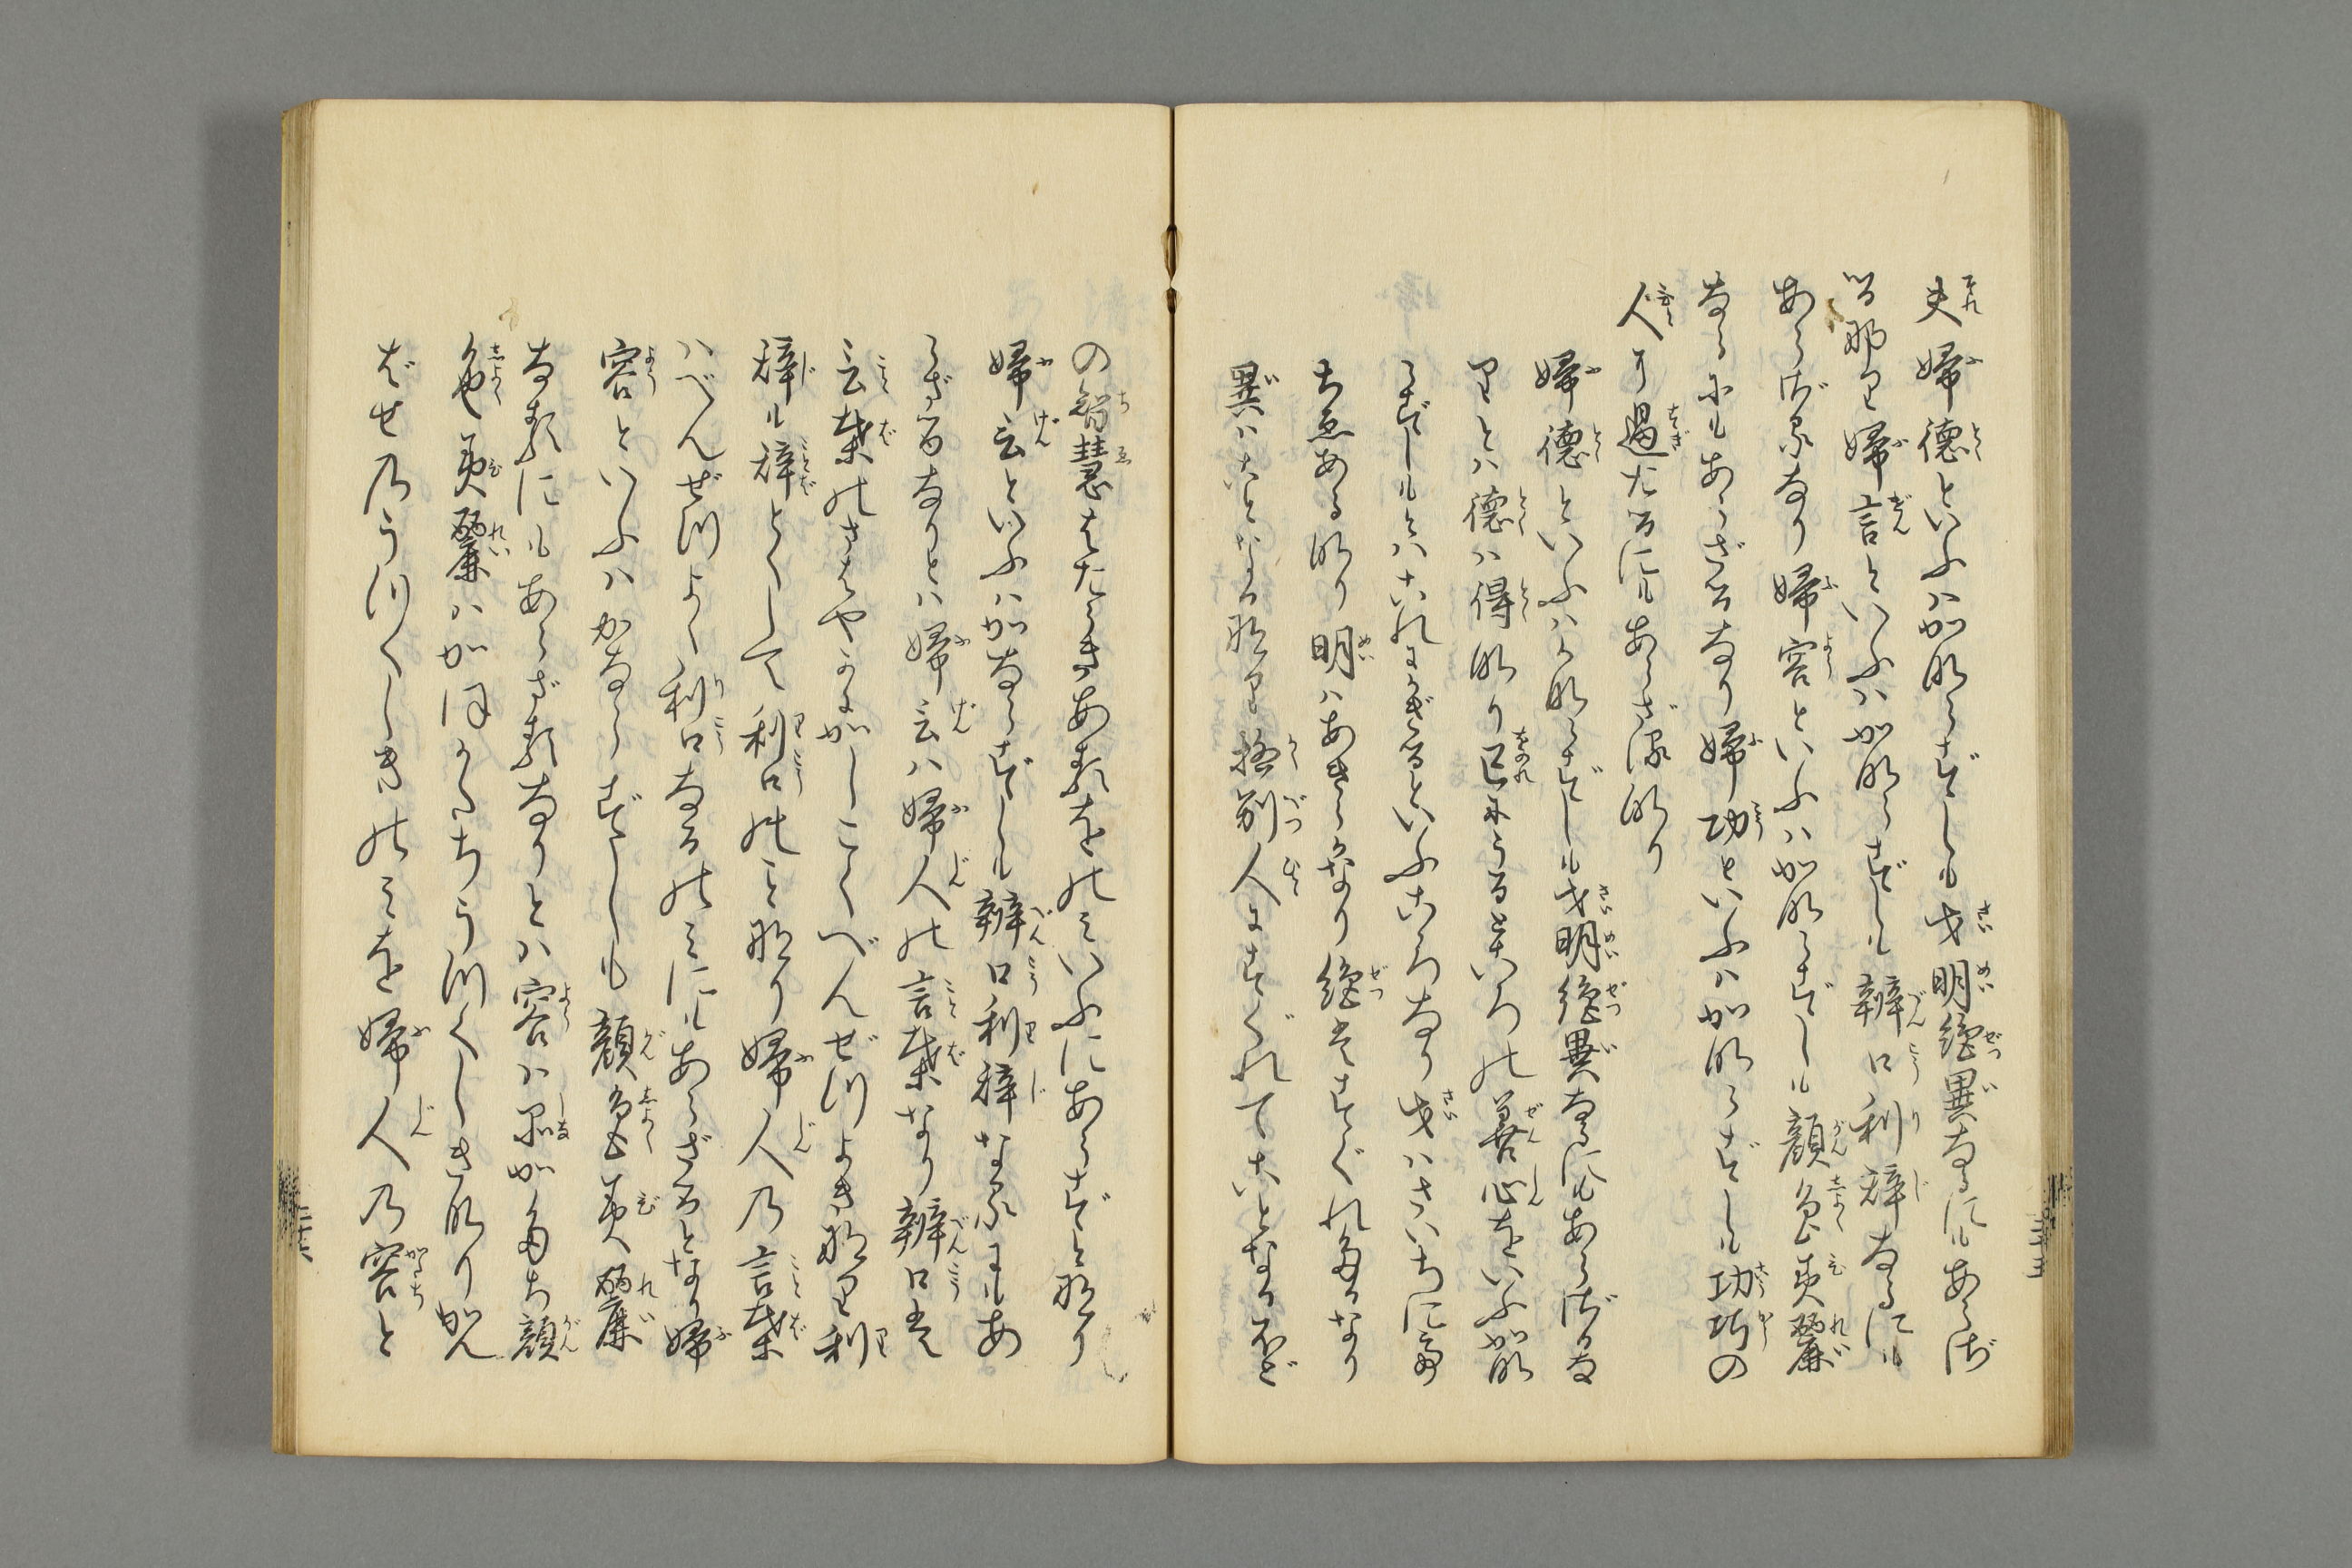 夫婦徳といふハかならずしも才明絶異なるにもあらざ
る那り婦言といふハかならずしも辯口利辞なるにも
あらざるなり婦容といふハかならずしも顔色美麗
なるにもあらざるなり婦功といふハかならずしも功巧の
人に過たるにもあらざる也なり
婦徳といふハかならずしも才明絶異なるにもあらざるな
りとハ徳ハ得なり己にうるところの善心をいふかな
らずしもとハこれにかぎるといふこゝろなり才ハさいちにて
ちゑある也なり明ハあきらかなり絶ハすぐれたるなり
異ハことなるなり格別人にすぐれてことなるほど
の智慧はたらきあるをのミいふにあらずとなり
婦言といふハかならずしも辯口利辞なるにもあ
らざるなりとハ婦言ハ婦人の言葉なり辯口ハ
言葉のさハやかにかしこくべんぜつよきなり利
辞も辞とくして利口のことなり婦人の言葉
ハべんぜつよく利口なるのミにもあらざるとなり婦
容といふハかならずしも顔色美麗
なるにもあらざるなりとハ容ハ品かたち顔
色美麗ハかほかたちうつくしきなりかん
ばせのうつくしきのミを婦人の容と
三十五
三十六